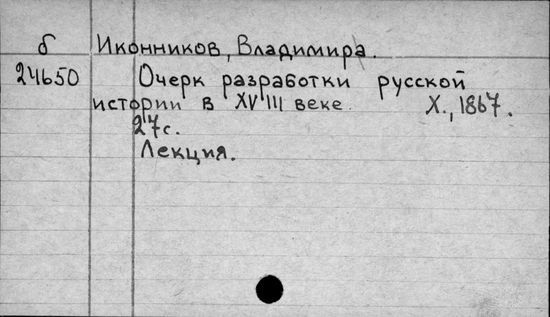 б Иконников, Владимира.
24650 Очерк разработки русской
истории в XVIII веке. Х., 1867.
27с.
Лекция.